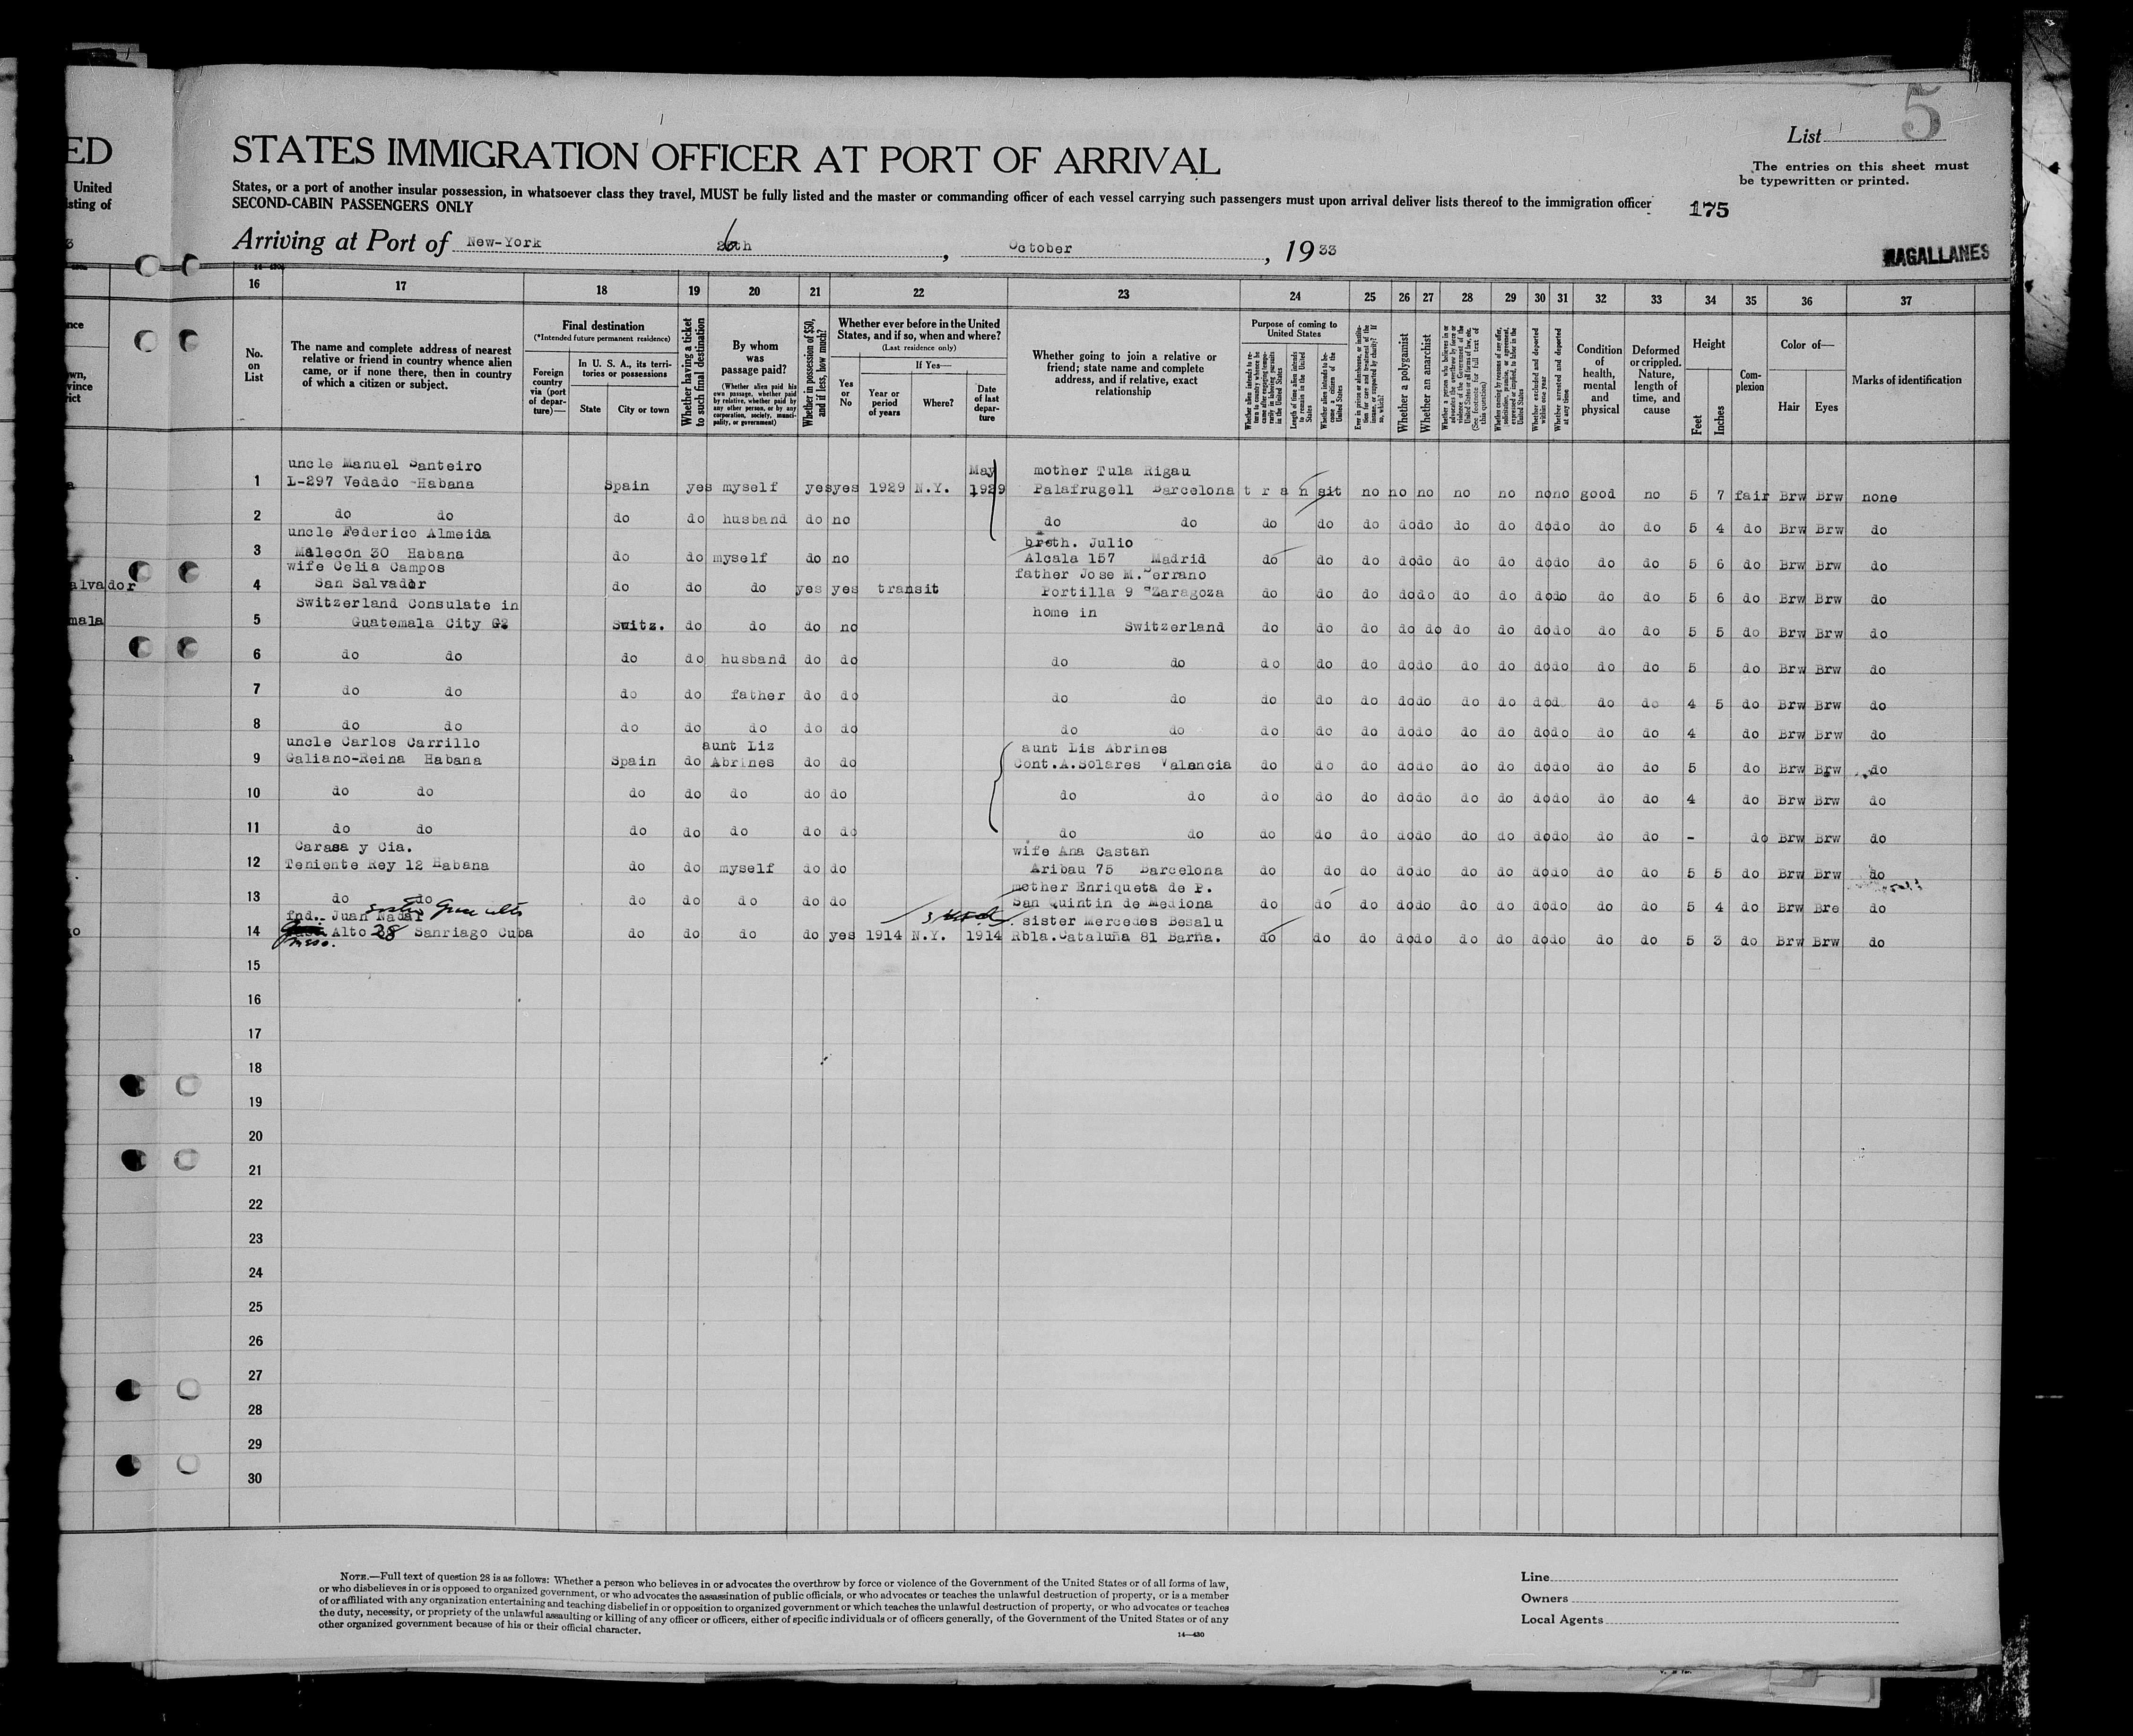 ED
United
isting of
STATES IMMIGRATION OFFICER AT PORT OF ARRIVAL
List
5
The entries on this sheet must
be typewritten or printed.
States, or a port of another insular possession, in whatsoever class they travel, MUST be fully listed and the master or commanding officer of each vessel carrying such passengers must upon arrival deliver lists thereof to the immigration officer
SECOND-CABIN PASSENGERS ONLY
175
Arriving at Port of New-York , October , 1933
MAGALLANES
16 17 18 19 20 21 22 23 24 25 26 27 28 29 30 31 32 33 34 35 36 37
No. on List
The name and complete address of nearest relative or friend in country whence alien came, or if none there, then in country of which a citizen or subject.
Final destination
(*Intended future permanent residence)
Foreign country via (port of departure)—
In U. S. A., its territories or possessions
State
City or town
Whether having a ticket to such final destination
By whom was passage paid?
(Whether alien paid his own passage, whether paid by relative, whether paid by any other person, or by any corporation, society, municipality, or government)
Whether in possession of $50, and if less, how much?
Whether ever before in the United States, and if so, when and where?
(Last residence only)
Yes or No
If Yes—
Year or period of years
Where?
Date of last departure
Whether going to join a relative or friend; state name and complete address, and if relative, exact relationship
Purpose of coming to United States
Whether a polygamist
Whether an anarchist
Condition of health, mental and physical
Deformed or crippled. Nature, length of time, and cause
Height
Feet
Inches
Complexion
Color of—
Hair
Eyes
Marks of identification
uncle Manuel Santeiro May mother Tula Rigau
1 L-297 Vedado Habana Spain yes myself yes yes 1929 N.Y. 1929 Palafrugell Barcelona transit no no no no no no no good no 5 7 fair Brw Brw none
2 do do do do husband do no do do do do do do do do do do do do do 5 4 do Brw Brw do
uncle Federico Almeida breth. Julio
3 Malecon 30 Habana do do myself do no Alcala 157 Madrid do do do do do do do do do do do 5 6 do Brw Brw do
wife Celia Campos father Jose M. Serrano
alvador 4 San Salvador do do do yes yes transit Portilla 9 Zaragoza do do do do do do do do do do do 5 6 do Brw Brw do
Switzerland Consulate in home in
mala 5 Guatemala City Switz. do do do no Switzerland do do do do do do do do do do do 5 5 do Brw Brw do
6 do do do do husband do do do do do do do do do do do do do do do 5 do Brw Brw do
7 do do do do father do do do do do do do do do do do do do do 4 5 do Brw Brw do
8 do do do do do do do do do do do do do do do do do do do do 4 do Brw Brw do
uncle Carlos Carrillo aunt Liz aunt Lis Abrines
9 Galiano-Reina Habana Spain do Abrines do do Cont.A.Solares Valencia do do do do do do do do do do do 5 do Brw Brw do
10 do do do do do do do do do do do do do do do do do do do do 4 do Brw Brw do
11 do do do do do do do do do do do do do do do do do do do do - do Brw Brw do
Carasa y Cia. wife Ana Castan
12 Teniente Rey 12 Habana do do myself do do Aribau 75 Barcelona do do do do do do do do do do do 5 5 do Brw Brw do
mother Enriqueta de P.
13 do do do do do do do San Quintin de Mediona do do do do do do do do do do do 5 4 do Brw Bre do
fnd. Juan Nadal sister Mercedes Besalu
14 Alto 28 Sanriago Cuba do do do do yes 1914 N.Y. 1914 Rbla.Cataluña 81 Barña. do do do do do do do do do do do 5 3 do Brw Brw do
15
16
17
18
19
20
21
22
23
24
25
26
27
28
29
30
NOTE.—Full text of question 28 is as follows: Whether a person who believes in or advocates the overthrow by force or violence of the Government of the United States or of all forms of law,
or who disbelieves in or is opposed to organized government, or who advocates the assassination of public officials, or who advocates or teaches the unlawful destruction of property, or is a member
of or affiliated with any organization entertaining and teaching disbelief in or opposition to organized government or which teaches the unlawful destruction of property, or who advocates or teaches
the duty, necessity, or propriety of the unlawful assaulting or killing of any officer or officers, either of specific individuals or of officers generally, of the Government of the United States or of any
other organized government because of his or their official character.
14—430
Line
Owners
Local Agents